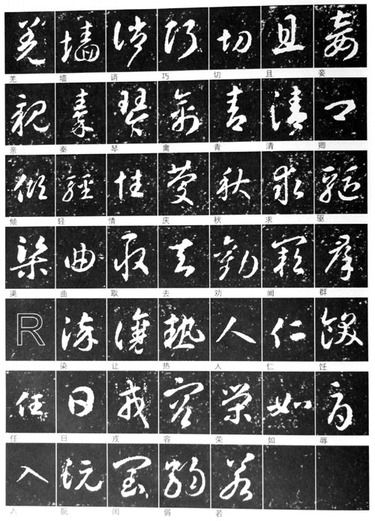 羌 墙 诮 巧 切 且 妾
亲 秦 琴 禽 青 清 卿
倾 轻 情 庆 秋 求 驱
渠 曲 取 去 劝 阙 群
R 染 让 热 人 仁 饪
任 日 戎 容 荣 如 辱
入 阮 闰 弱 若